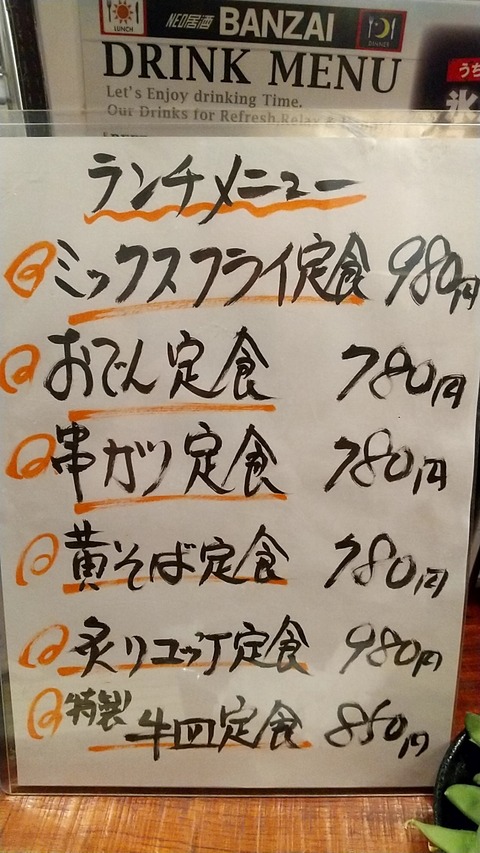 LUNCH
NEO居酒 BANZAI
DINNER
DRINK MENU
Let's Enjoy drinking Time.
Our Drinks for Refresh,Relax &
うち
氷
ランチメニュー
ミックスフライ定食 980円
おでん定食 780円
串カツ定食 780円
黄そば定食 780円
炙りユッケ定食 980円
特製 牛皿定食 850円